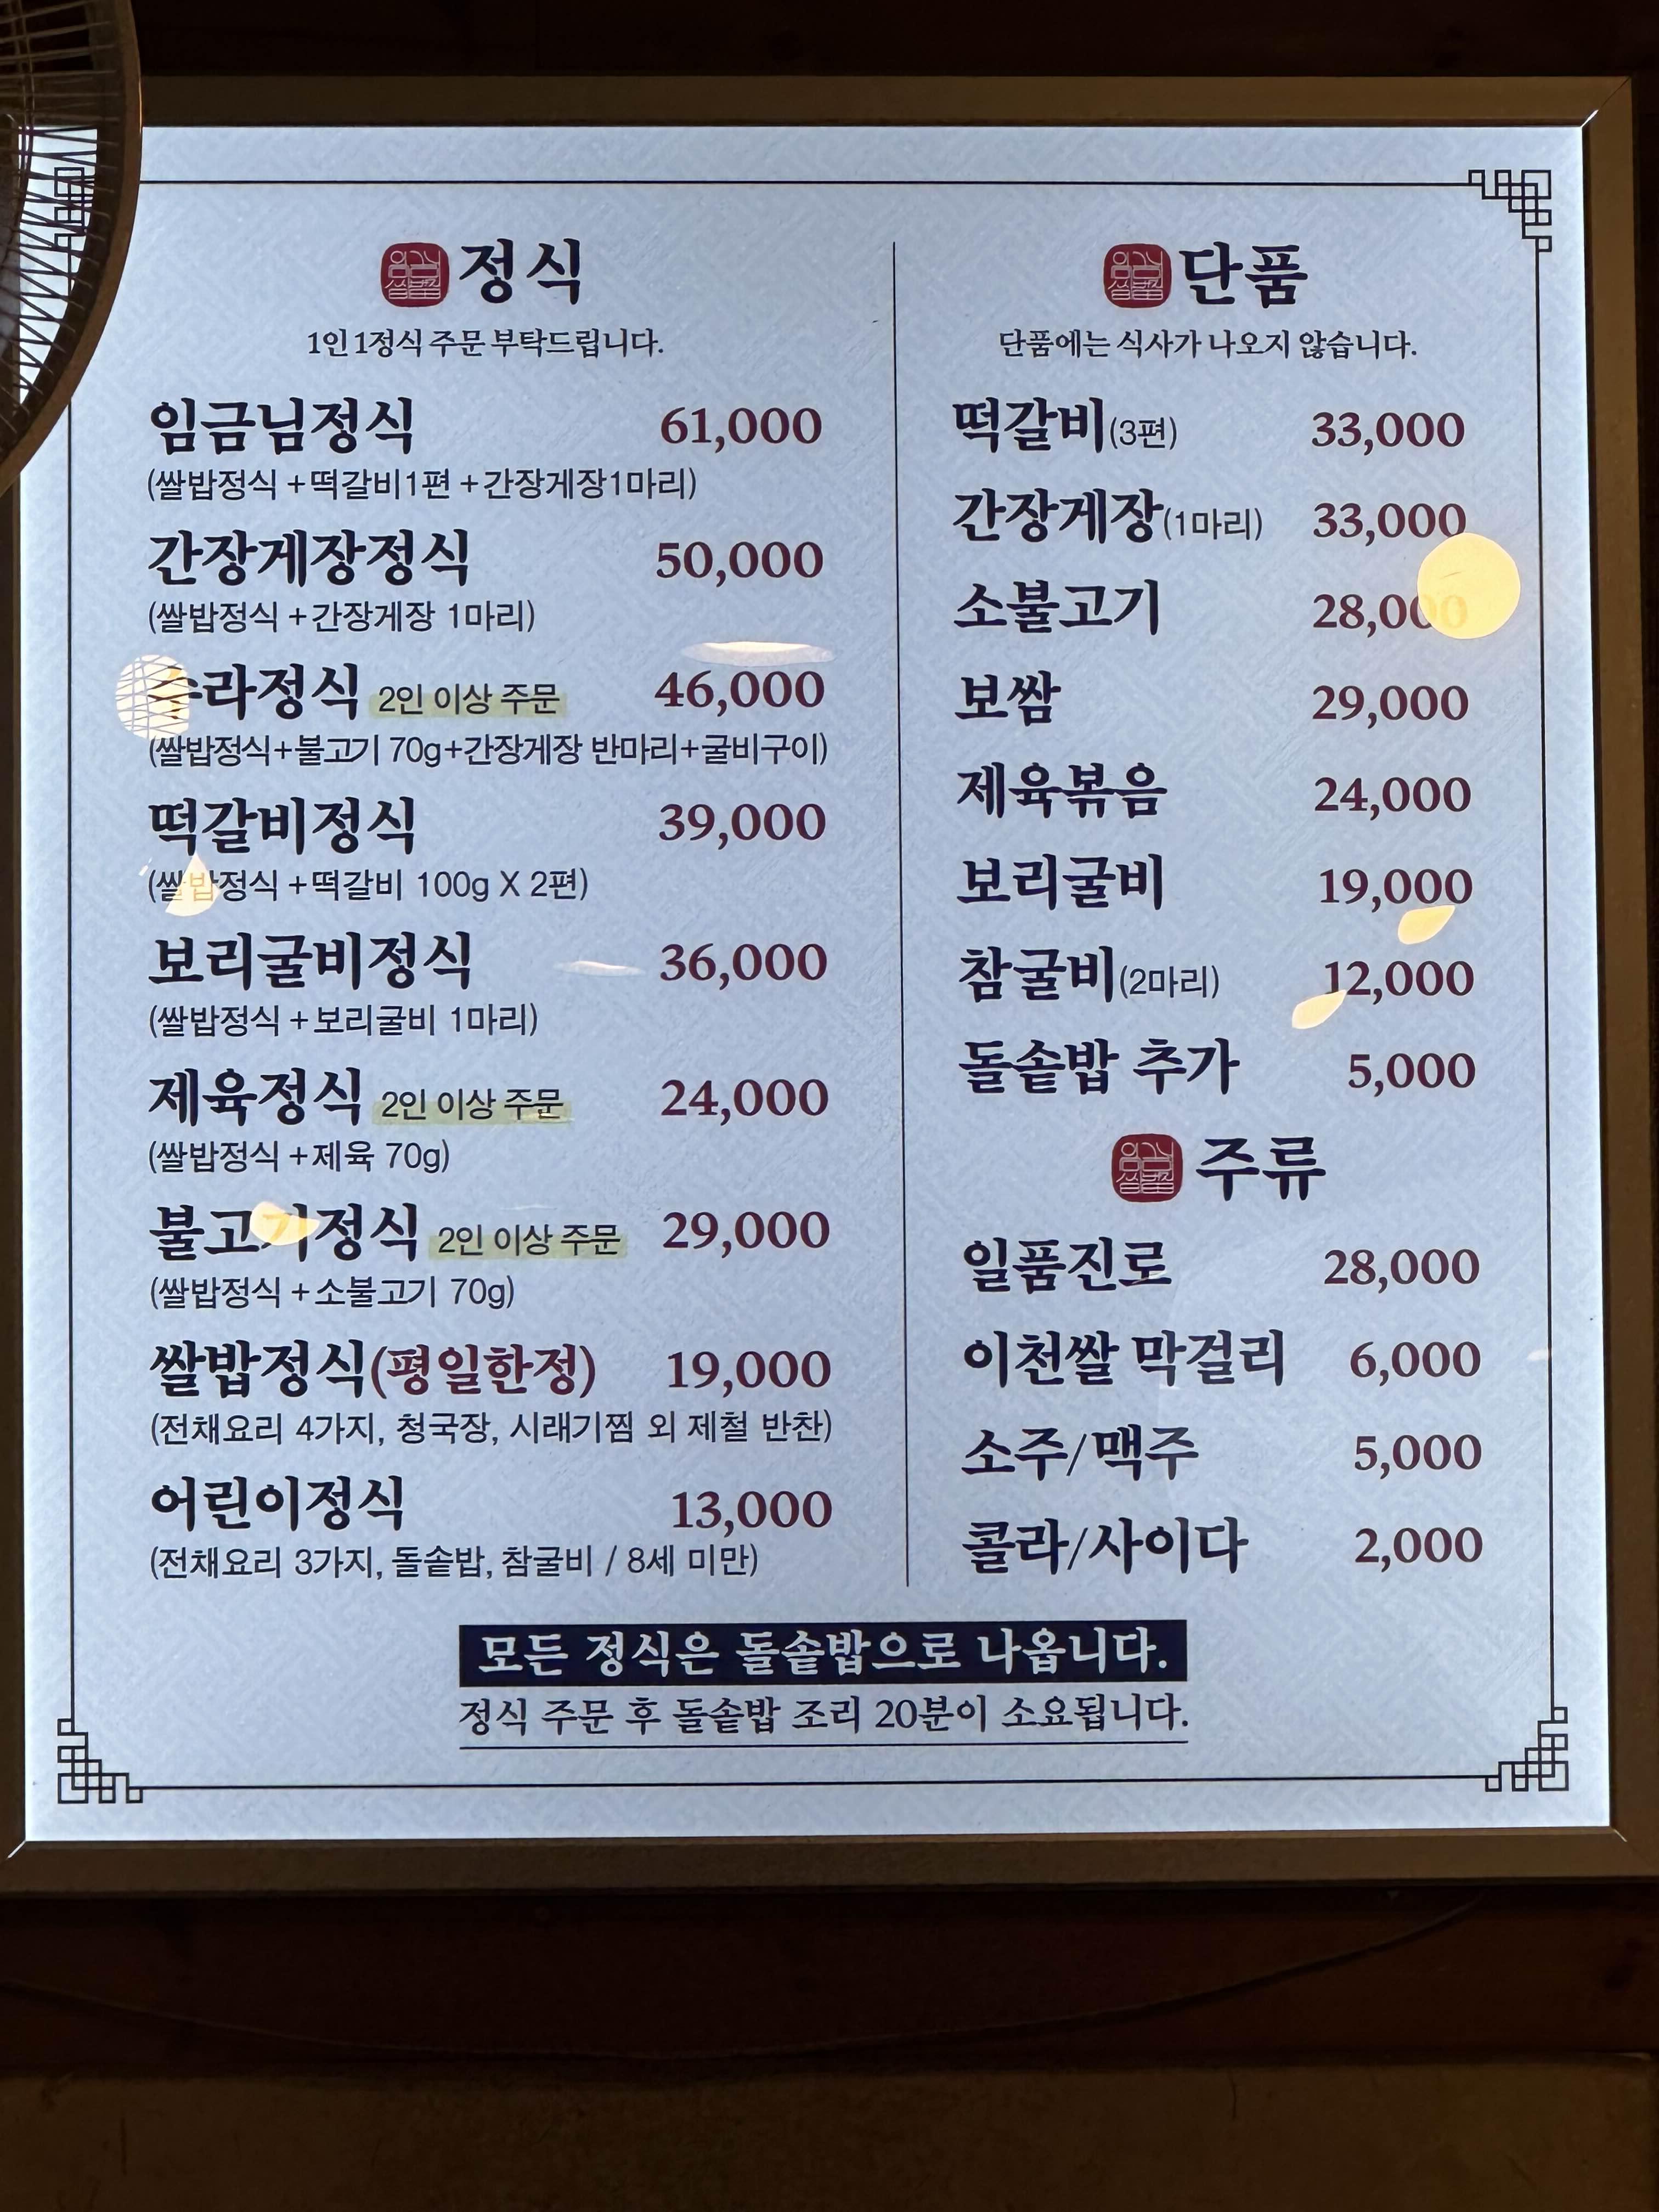 임금님쌀밥 정식
1인 1정식 주문 부탁드립니다.
임금님정식 61,000
(쌀밥정식 + 떡갈비1편 + 간장게장1마리)
간장게장정식 50,000
(쌀밥정식 + 간장게장 1마리)
수라정식 2인 이상 주문 46,000
(쌀밥정식+불고기 70g+간장게장 반마리+굴비구이)
떡갈비정식 39,000
(쌀밥정식 + 떡갈비 100g X 2편)
보리굴비정식 36,000
(쌀밥정식 + 보리굴비 1마리)
제육정식 2인 이상 주문 24,000
(쌀밥정식 + 제육 70g)
불고기정식 2인 이상 주문 29,000
(쌀밥정식 + 소불고기 70g)
쌀밥정식(평일한정) 19,000
(전채요리 4가지, 청국장, 시래기찜 외 제철 반찬)
어린이정식 13,000
(전채요리 3가지, 돌솥밥, 참굴비 / 8세 미만)
임금님쌀밥 단품
단품에는 식사가 나오지 않습니다.
떡갈비(3편) 33,000
간장게장(1마리) 33,000
소불고기 28,000
보쌈 29,000
제육볶음 24,000
보리굴비 19,000
참굴비(2마리) 12,000
돌솥밥 추가 5,000
임금님쌀밥 주류
일품진로 28,000
이천쌀 막걸리 6,000
소주/맥주 5,000
콜라/사이다 2,000
모든 정식은 돌솥밥으로 나옵니다.
정식 주문 후 돌솥밥 조리 20분이 소요됩니다.